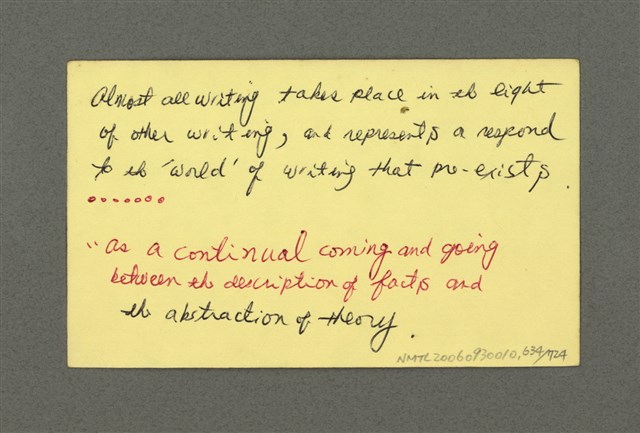 Almost all writing takes place in th light
of other writing, and represents a respond
to th 'world' of writing that pre-exists.
.......
"as a continual coming and going
between th description of facts and
th abstraction of theory.
NMTL20060930010,634/724